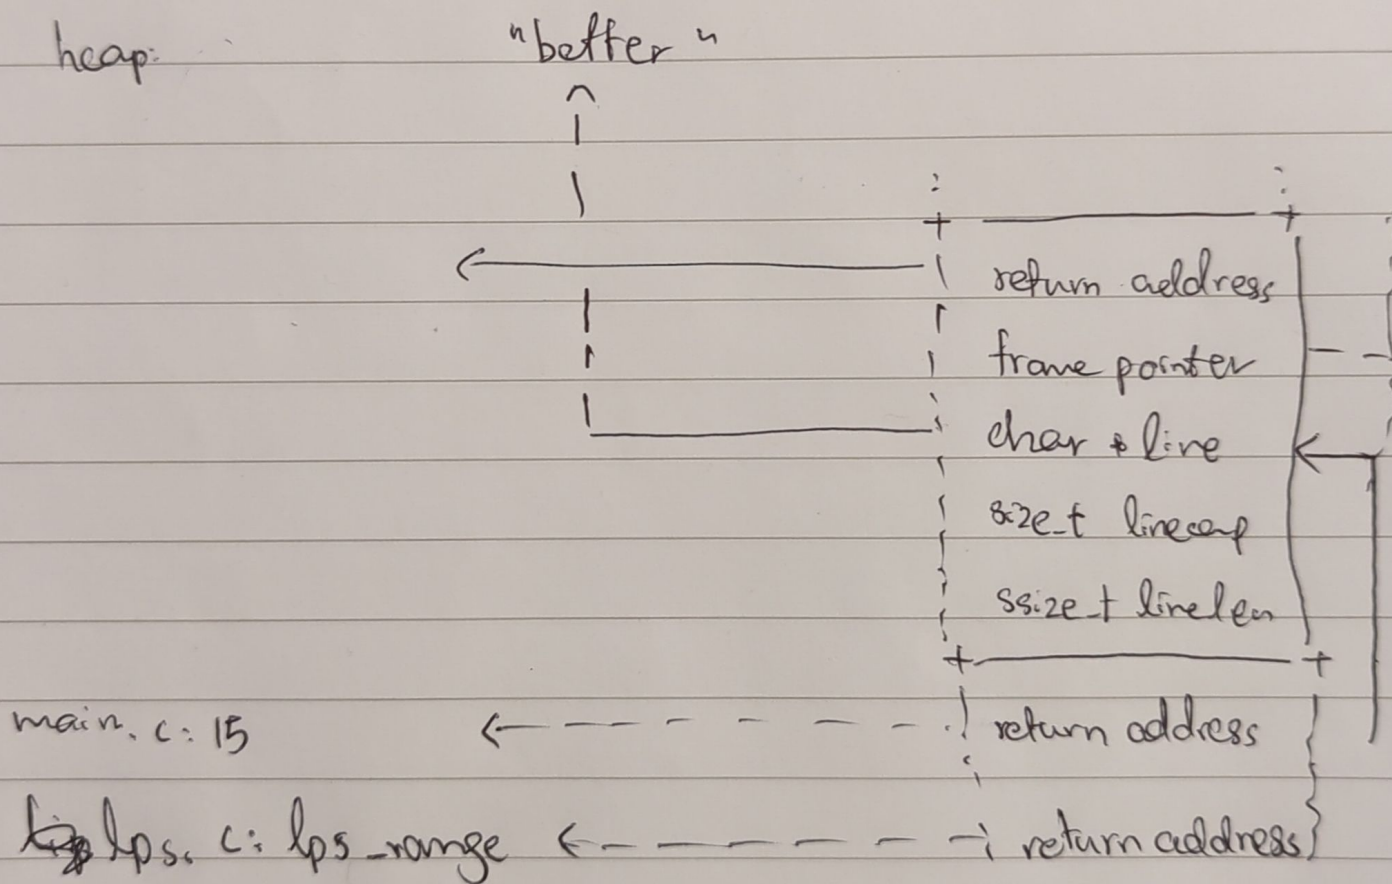 heap: "better"
return address
frame pointer
char * line
size_t linecap
ssize_t linelen
main.c: 15 return address
lps.c: lps_range return address